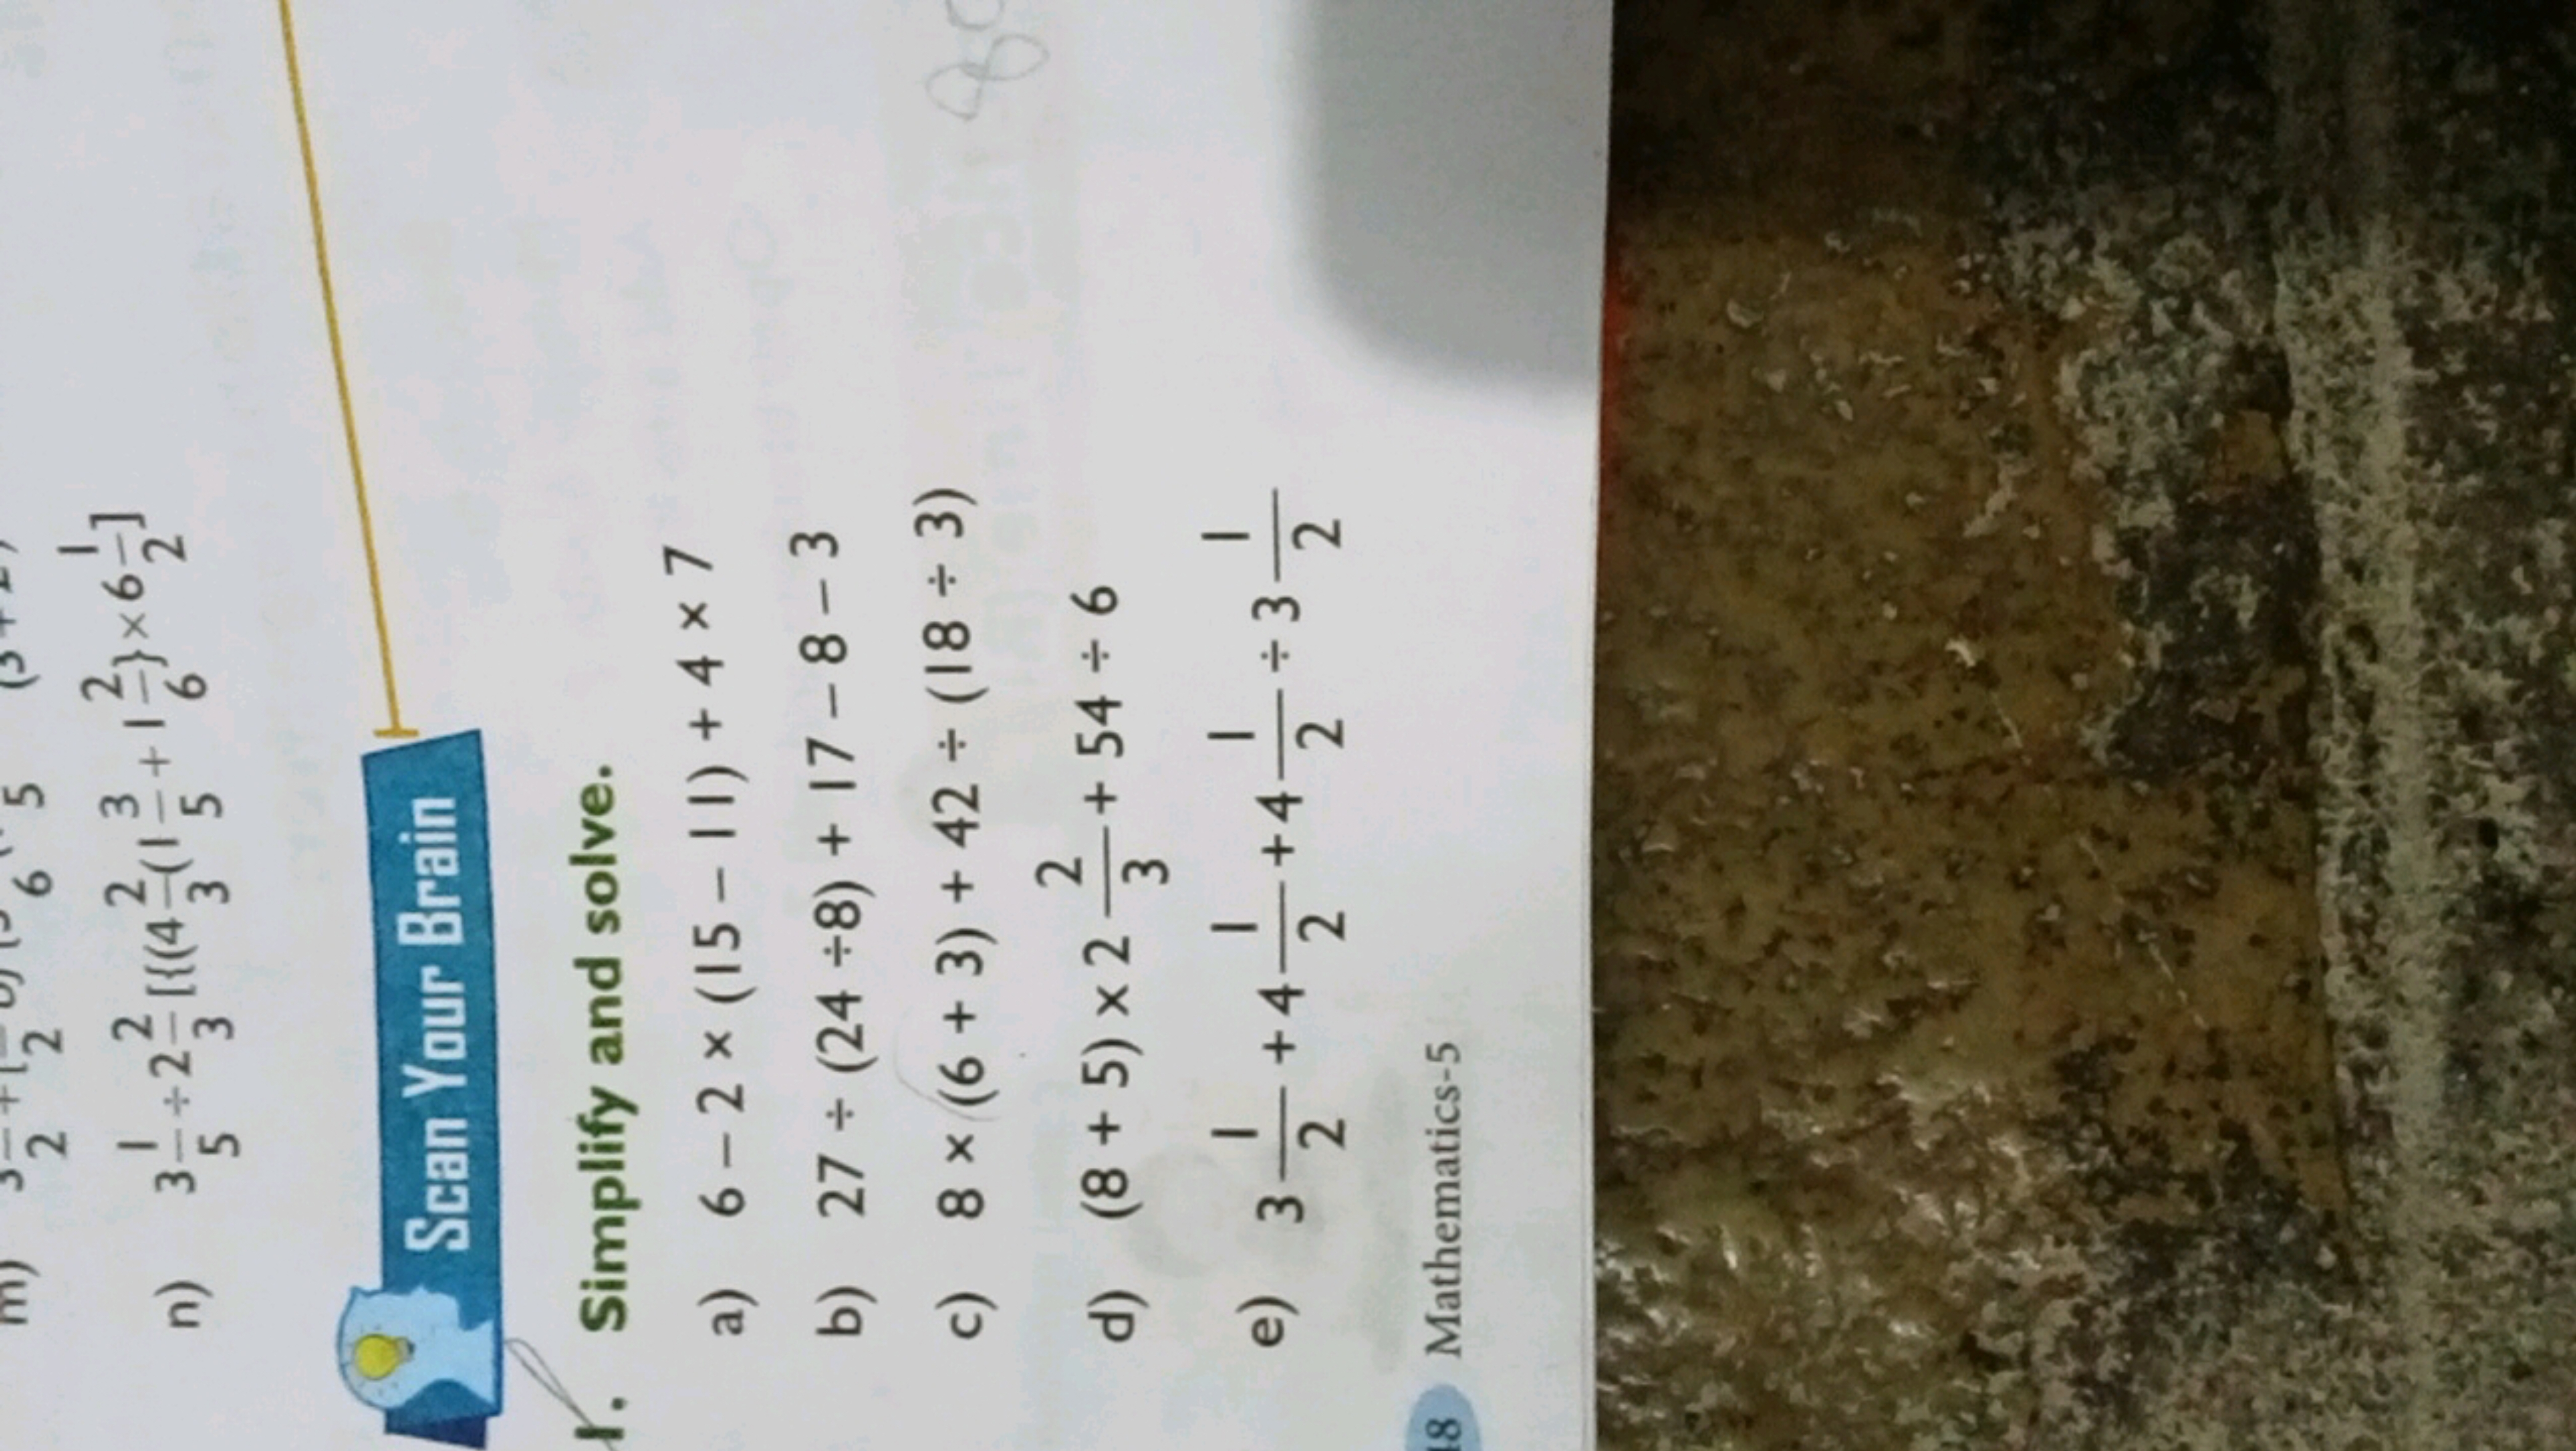 m) 3 1/2 +
n) 3 1/5 ÷ 2 2/3 [{(4 2/3 (1 3/5 + 1 2/6} × 6 1/2]
Scan Your Brain
1. Simplify and solve.
a) 6 – 2 × (15 – 11) + 4 × 7
b) 27 ÷ (24 ÷8) + 17 – 8 – 3
c) 8 × (6 + 3) + 42 ÷ (18 ÷ 3)
d) (8 + 5) × 2 2/3 + 54 ÷ 6
e) 3 1/2 + 4 1/2 + 4 1/2 ÷ 3 1/2
48 Mathematics-5